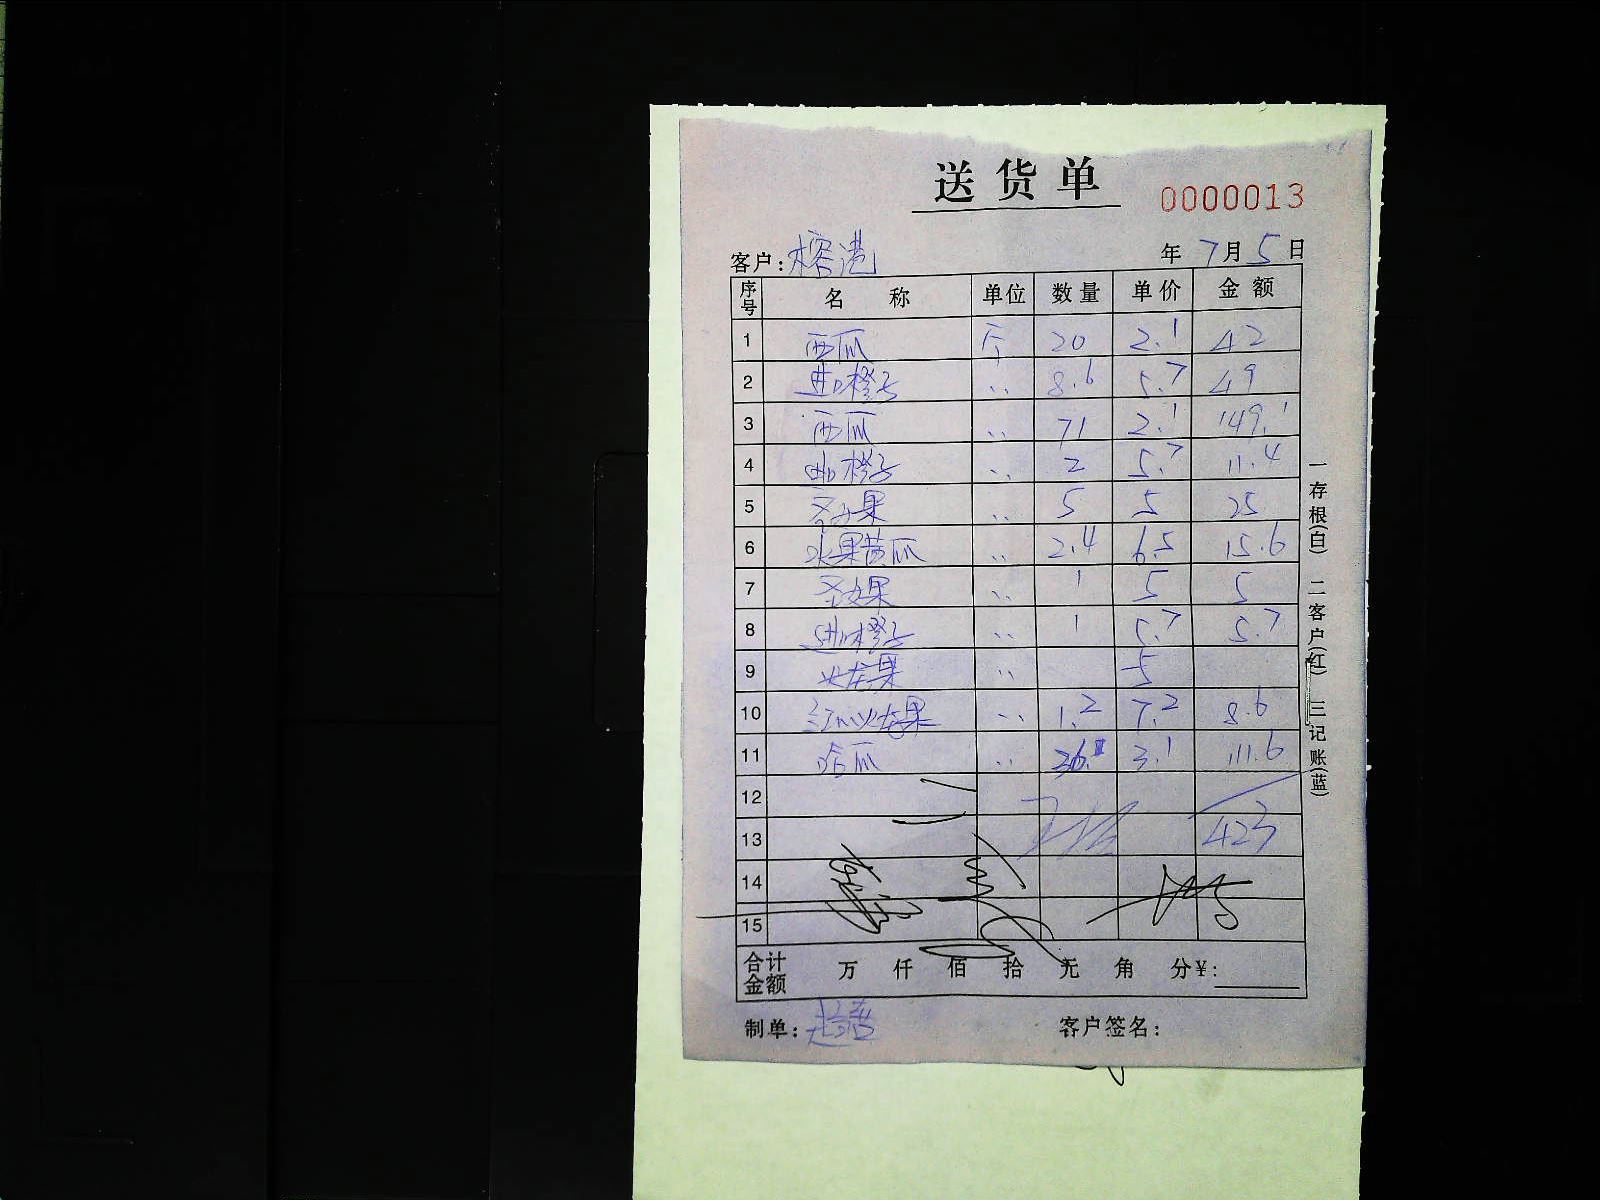 送货单
0000013
客户:榕港 年 7月5日
序号 名称 单位 数量 单价 金额
1 西瓜 斤 20 2.1 42
2 进口橙子 〃 8.6 5.7 49
3 西瓜 〃 71 2.1 149.1
4 进口橙子 〃 2 5.7 11.4
5 圣女果 〃 5 5 25
6 水果黄瓜 〃 2.4 6.5 15.6
7 圣女果 〃 1 5 5
8 进口橙子 〃 1 5.7 5.7
9 火龙果 〃 5
10 红心火龙果 〃 1.2 7.2 8.6
11 哈瓜 〃 36. 3.1 111.6
12
13 423
14
15
合计金额 万 仟 佰 拾 元 角 分¥:
制单: 客户签名:
一存根(白) 二客户(红) 三记账(蓝)